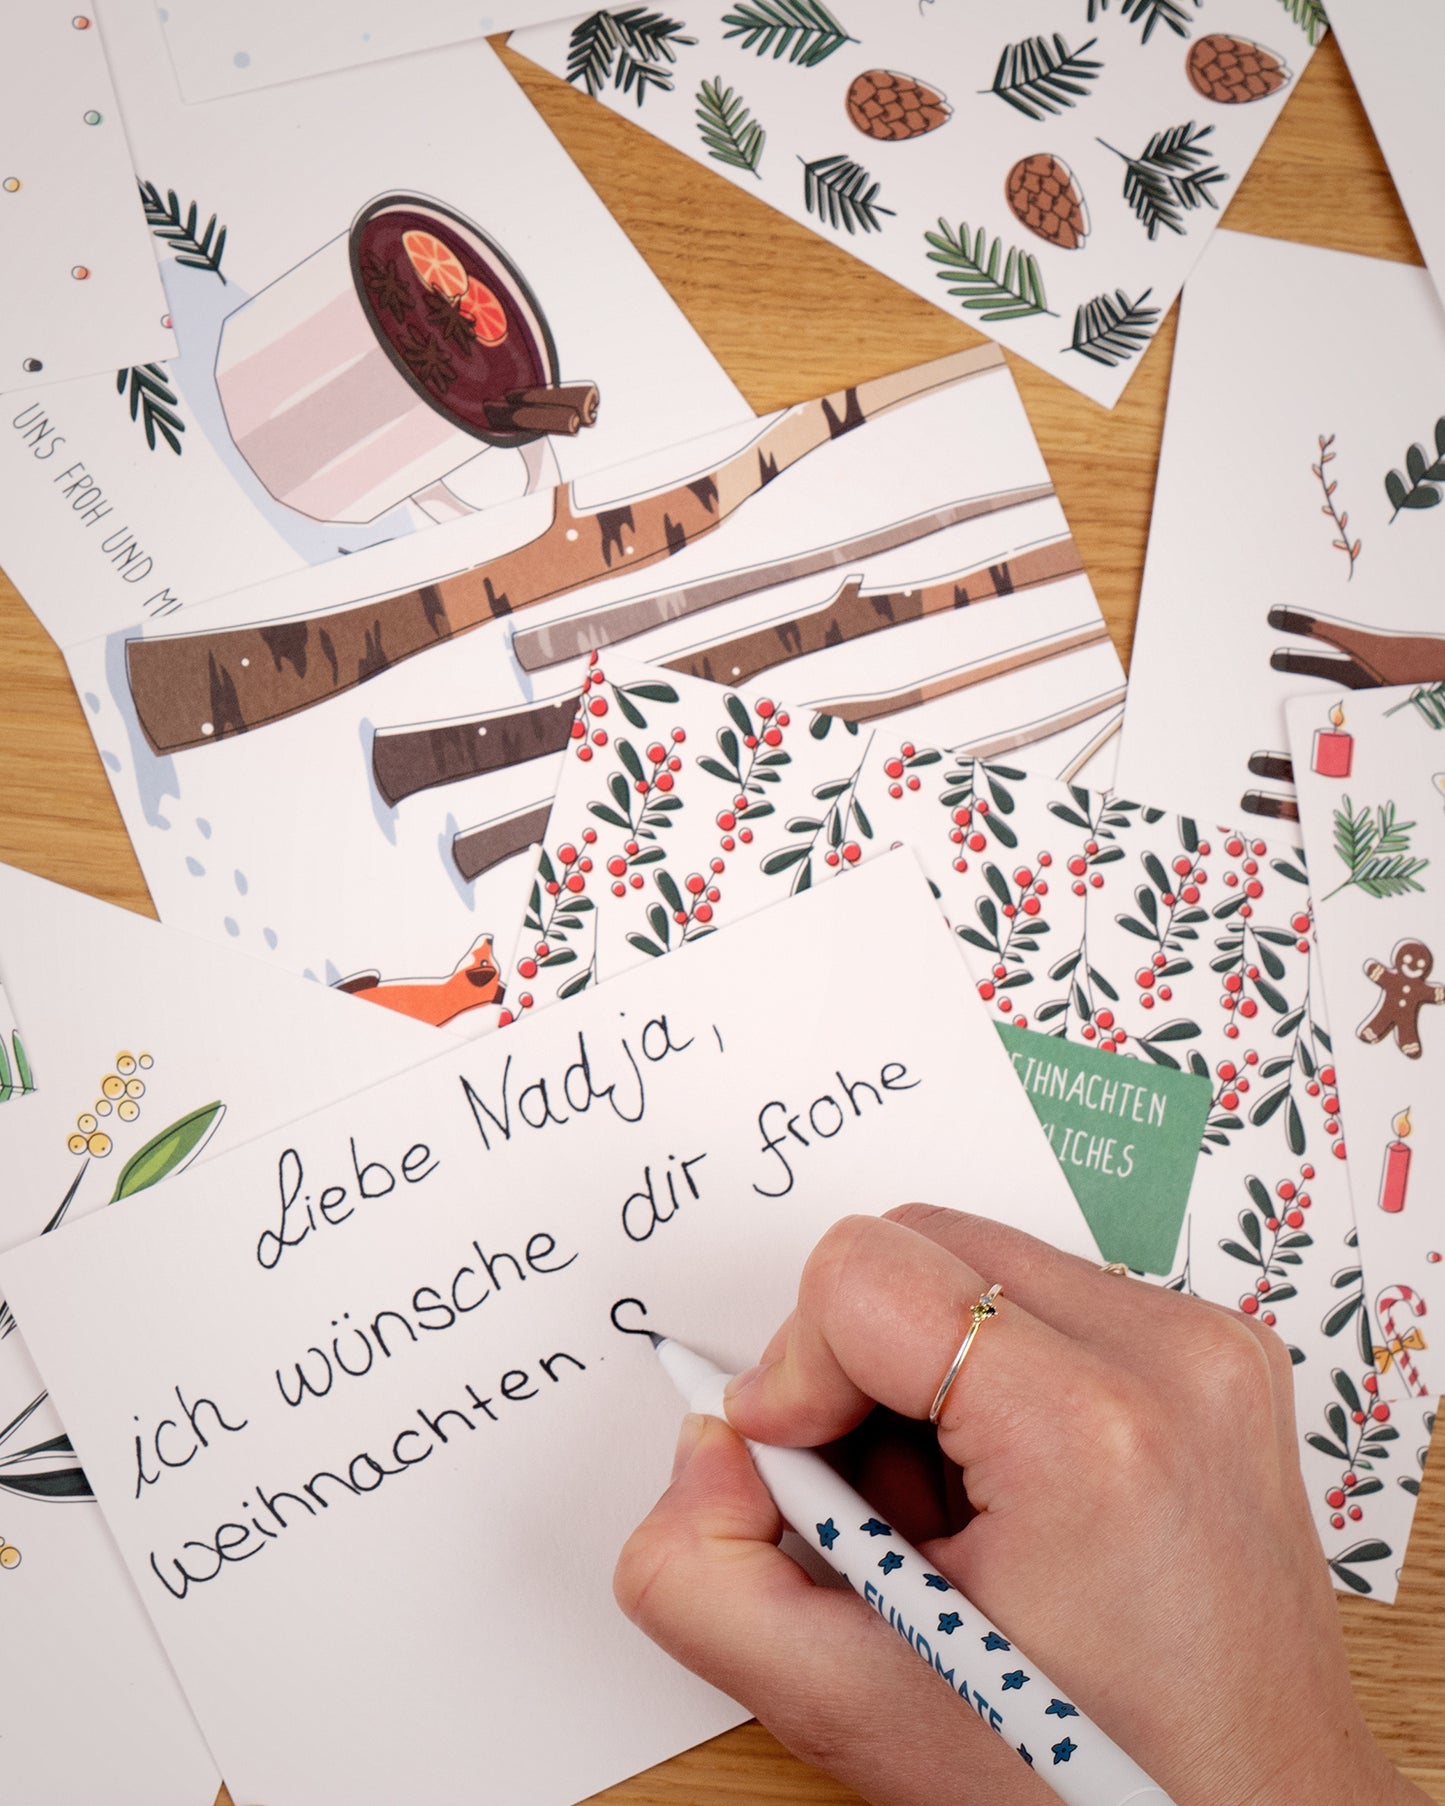 UNS FROH UND
WEIHNACHTEN
Liebe Nadja,
ich wünsche dir frohe
weihnachten.
FUNDMATE